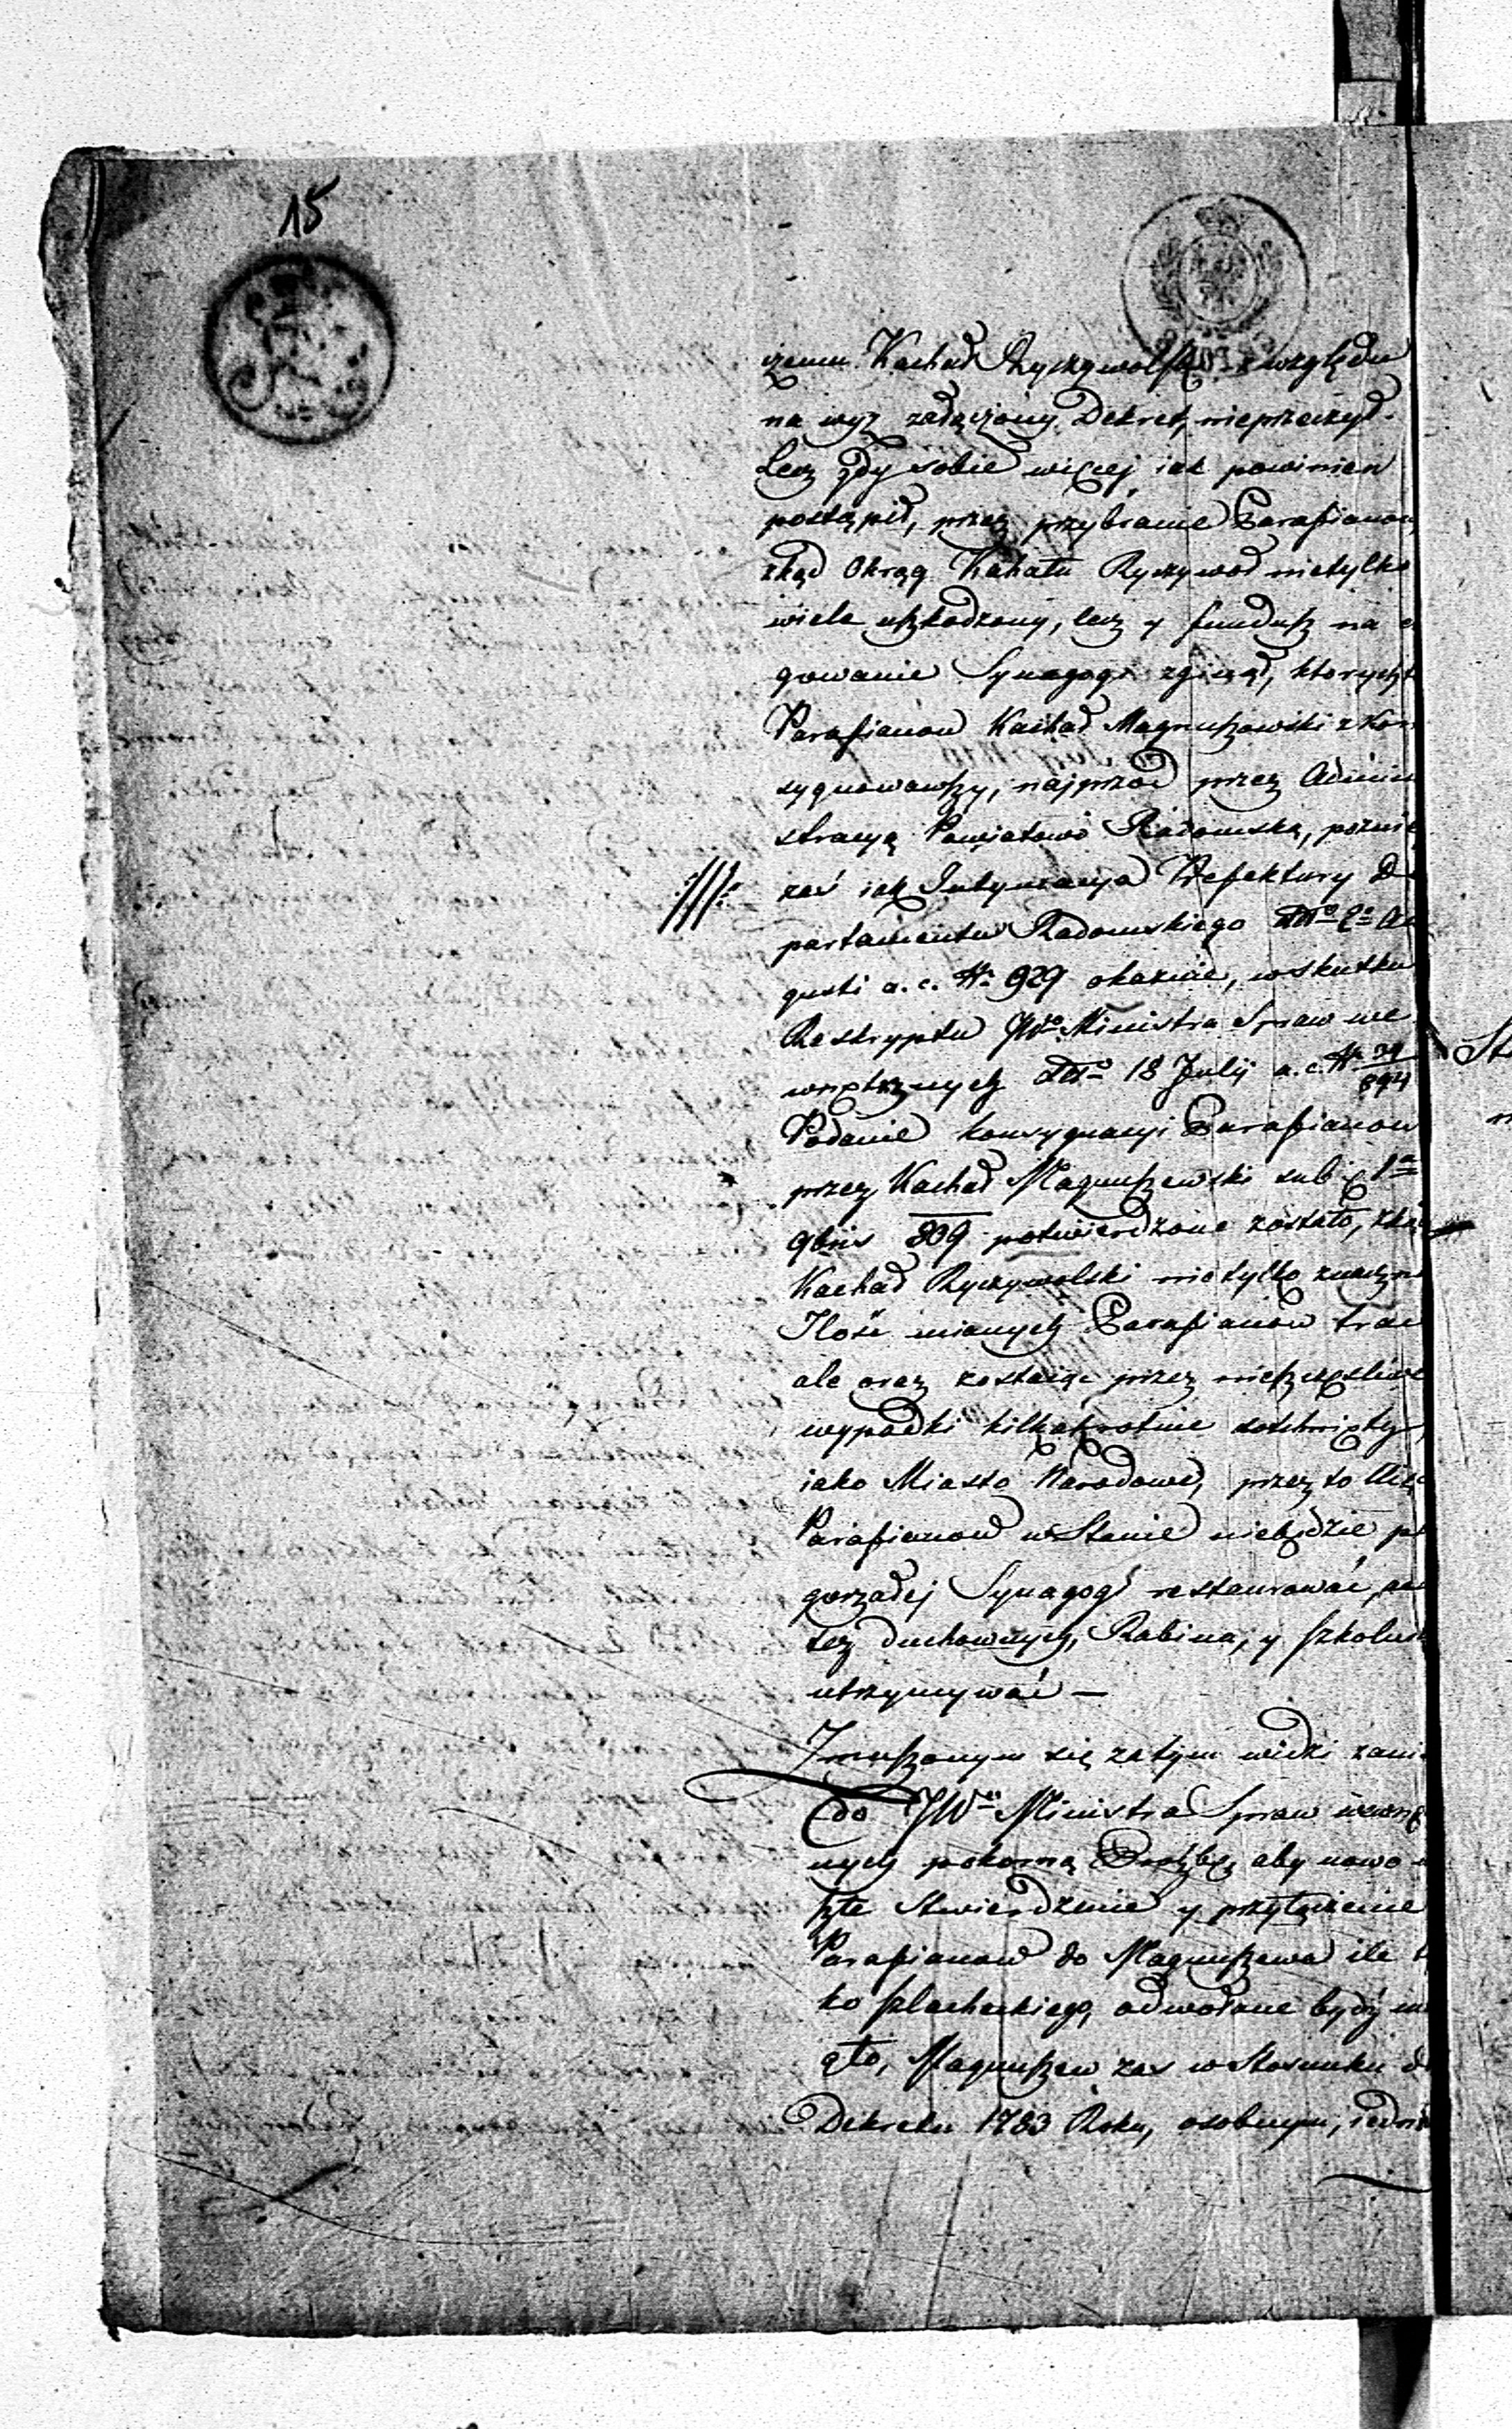 15
czemu Kachał Ryczywolski z względu
na wyz załączony Dekret, nieprzeczył.
Lecz gdy sobie więcej iak powinien
postąpił, przez przybranie Parafianow
zkąd Okrąg Kahału Ryczywoł nietylko
wiele uszkodzony, lecz y fundusz na
gowanie Synagogi zginął, ktorych
Parafianow Kachał Magnuszewski zkon
sygnowawszy, najprzod przez Admini
stracyą Powiatowo Radomską, pozni
zaś iak Intymacya Prefektury De
partamentu Radomskiego ddto 2o Au
gusti a. c. No 929 okazuie, w skutku
Reskryptu JWo Ministra Spraw we
wnętrznych ddto 18 Julij a. c. No 34/894
Podanie konsygnacyi Parafianow
przez Kachał Magnuszewski sub 1a
9bris 809 potwierdzone zostało, zką
Kachał Ryczywolski nietylko znaczn
Ilość mianych Parafianow trac
ale oraz zostaiąc przez nieszczęśliwe
wypadki kilkakrotnie dotchnięty,
iako Miasto Narodowe, przez to
Parafianow w Stanie niebędzie po
gorzałej Synagogi restaurować, an
tez duchownych, Rabina, y szkoln
utrzymywać —
Zmuszonym się zatym widzi zani
do JWo Ministra Spraw wewnę
nych pokorną Prożbę, aby nowo
szłe Stwierdzenie y przyłączenie
Parafianow do Magnuszewa ile
ko szlacheckiego, odwołane bydź m
gło, Magnuszew zas w Stosunku d
Dekretu 1783 Roku, osobnym, iedn
St